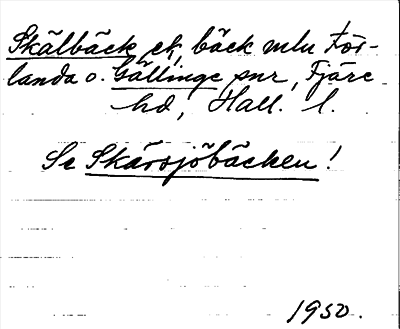 Skälbäck ek, bäck mlu För-
landa o. Gällinge snr, Fjäre
hd, Hall. l.
Se Skärsjöbäcken!
1950.